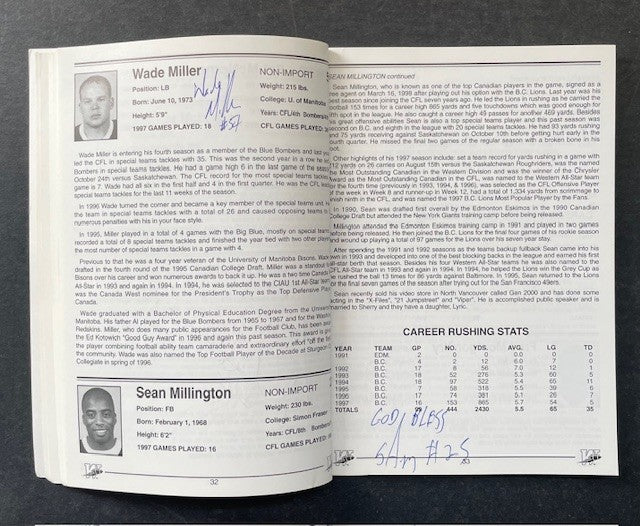 Wade Miller
NON-IMPORT
Position: LB
Weight: 215 lbs.
Born: June 10, 1973
College: U. of Manitoba
Height: 5'9"
Years: CFL/4th Bombers
1997 GAMES PLAYED: 18
CFL GAMES
Wade
Miller
#57
Wade Miller is entering his fourth season as a member of the Blue Bombers and last
led the CFL in special teams tackles with 35. This was the second year in a row he
Bombers in special teams tackles. He had a game high 6 in the last game of the season
October 24th versus Saskatchewan. The CFL record for the most special teams tackles
game is 7. Wade had all six in the first half and 4 in the first quarter. He was the CFL
special teams tackles for the last 11 weeks of the season.
In 1996 Wade turned the corner and became a key member of the special teams unit.
the team in special teams tackles with a total of 26 and caused opposing teams
numerous penalties with his in your face style.
In 1995, Miller played in a total of 4 games with the Big Blue, mostly on special teams
recorded a total of 8 special teams tackles and finished the year tied with two other players
the most number of special teams tackles in a game with 4.
Previous to that he was a four year veteran of the University of Manitoba Bisons. Wade
drafted in the fourth round of the 1995 Canadian College Draft. Miller was a standout
Bisons over his career and won numerous awards to back it up. He was a two time Canada
All-Star in 1993 and again in 1994. In 1994, he was selected to the CIAU 1st All-Star
was the Canada West nominee for the President's Trophy as the Top Defensive Player
Canada.
Wade graduated with a Bachelor of Physical Education Degree from the University
Manitoba. His father Al played for the Blue Bombers from 1965 to 1967 and for the
Redskins. Miller, who does many public appearances for the Football Club, has been
the Ed Kotowich "Good Guy Award" in 1996 and again this past season. This award is
the player combining football ability team camaraderie and extraordinary effort "off the
the community. Wade was also named the Top Football Player of the Decade at Sturgeon
Collegiate in spring of 1996.
Sean Millington
NON-IMPORT
Position: FB
Weight: 230 lbs.
Born: February 1, 1968
College: Simon Fraser
Height: 6'2"
Years: CFL/8th Bombers
1997 GAMES PLAYED: 16
CFL GAMES PLAYED:
32
SEAN MILLINGTON continued
Sean Millington, who is known as one of the top Canadian players in the game, signed as a
free agent on March 16, 1998 after playing out his option with the B.C. Lions. Last year was his
best season since joining the CFL seven years ago. He led the Lions in rushing as he carried the
football 153 times for a career high 865 yards and five touchdowns which was good enough for
spot in the league. He also caught a career high 49 passes for another 469 yards. Besides
great offensive abilities Sean is also a top special teams player and this past season was
second on B.C. and eighth in the league with 20 special teams tackles. He had 93 yards rushing
and 75 yards receiving against Saskatchewan on October 10th before getting hurt early in the
quarter. He missed the final two games of the regular season with a broken bone in his
foot.
Other highlights of his 1997 season include: set a team record for yards rushing in a game with
212 yards on 26 carries on August 15th versus the Saskatchewan Roughriders, was named the
the Most Outstanding Canadian in the Western Division and was the winner of the Chrysler
Award as the Most Outstanding Canadian in the CFL, was named to the Western All-Star team
for the fourth time (previously in 1993, 1994 & 1996), was selected as the CFL Offensive Player
of the week in Week 8 and runner-up in Week 12, had a total of 1,334 yards from scrimmage to
finish ninth in the CFL, and was named the 1997 B.C. Lions Most Popular Player by the Fans.
In 1990, Sean was drafted first overall by the Edmonton Eskimos in the 1990 Canadian
College Draft but attended the New York Giants training camp before being released.
Millington attended the Edmonton Eskimos training camp in 1991 and played in two games
before being released. He then joined the B.C. Lions for the final four games of his rookie season
and wound up playing a total of 97 games for the Lions over his seven year stay.
After spending the 1991 and 1992 seasons as the teams backup fullback Sean came into his
own in 1993 and developed into one of the best blocking backs in the league and earned his first
all-star berth that season. Besides his four Western All-Star teams he was also named to the
CFL All-Star team in 1993 and again in 1994. In 1994, he helped the Lions win the Grey Cup as
he rushed the ball 13 times for 86 yards against Baltimore. In 1995, Sean returned to the Lions
for the final seven games of the season after trying out for the San Francisco 49ers.
Sean recently sold his video store in North Vancouver called Gen 2000 and has done some
acting in the "X-Files", "21 Jumpstreet" and "Viper". He is accomplished public speaker and is
married to Sherry and they have a daughter, Lyric.
CAREER RUSHING STATS
YEAR TEAM GP NO. YDS. AVG. LG TD
1991 EDM. 2 0 0 0.0 0 0
B.C. 4 2 12 6.0 7 0
1992 B.C. 17 8 56 7.0 12 1
1993 B.C. 18 52 276 5.3 60 5
1994 B.C. 18 97 522 5.4 65
1995 B.C. 7 58 318 5.5 39 6
1996 B.C. 17 74 381 5.1 26 7
1997 B.C. 16 153 865 5.7 54 5
TOTALS 444 2430 5.5 65 35
GOD BLESS
#25
33